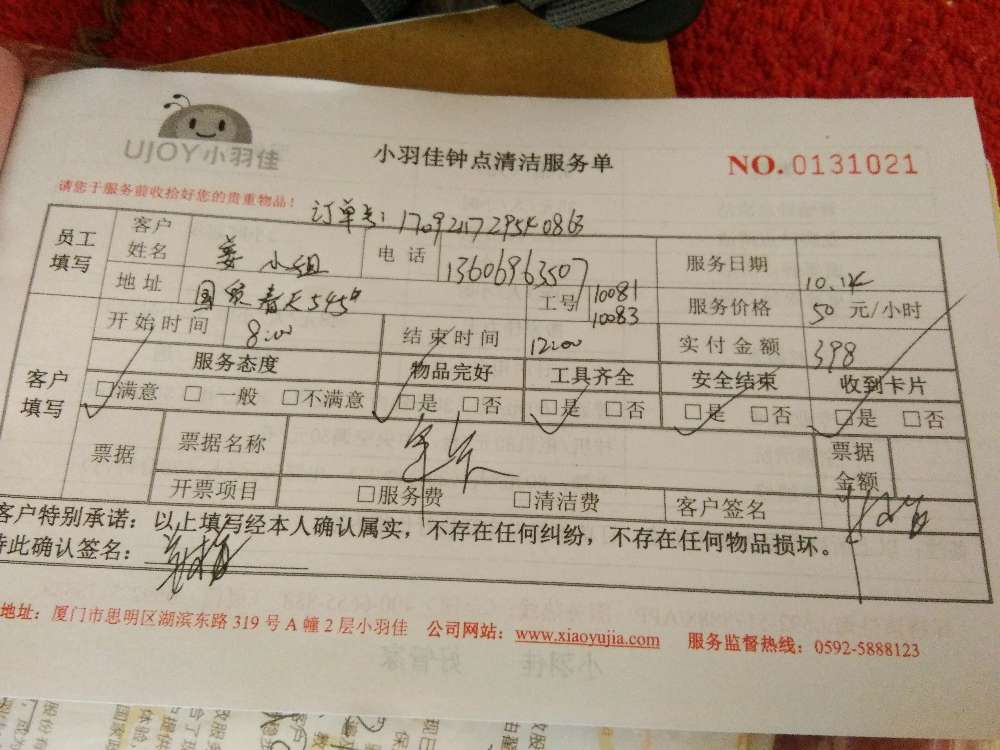 UJOY小羽佳
小羽佳钟点清洁服务单
NO. 0131021
请您于服务前收拾好您的贵重物品！
订单号：
员工填写 客户姓名 姜小姐 电话 13606963507 服务日期 10.14
地址 国贸春天545# 工号 10081 10083 服务价格 50 元/小时
开始时间 8:00 结束时间 12:00 实付金额 398
客户填写 服务态度 物品完好 工具齐全 安全结束 收到卡片
□满意 □一般 □不满意 □是 □否 □是 □否 □是 □否 □是 □否
票据 票据名称 票据金额
开票项目 □服务费 □清洁费 客户签名
客户特别承诺：以上填写经本人确认属实，不存在任何纠纷，不存在任何物品损坏。
特此确认签名：
地址：厦门市思明区湖滨东路 319 号 A 幢 2 层小羽佳 公司网站：www.xiaoyujia.com 服务监督热线：0592-5888123